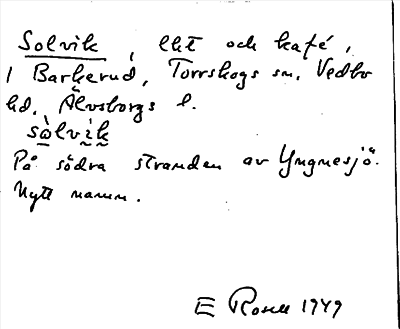 Solvik, lht och kafé,
i Barkerud, Torrskogs sn. Vedbo
hd. Älvsborgs l.
sòlvìk
På södra stranden av Yngnesjö.
Nytt namn.
E Rosell 1949